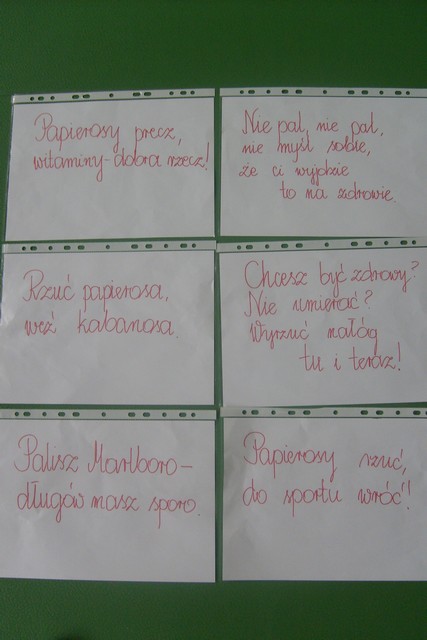 Papierosy precz,
witaminy-dobra rzecz!
Nie pal, nie pal,
nie myśl sobie,
że ci wyjdzie
to na zdrowie.
Rzuć papierosa,
weź kabanosa.
Chcesz być zdrowy?
Nie umierać?
Wyrzuć nałóg
tu i teraz!
Palisz Marlboro-
długów masz sporo.
Papierosy rzuć,
do sportu wróć!